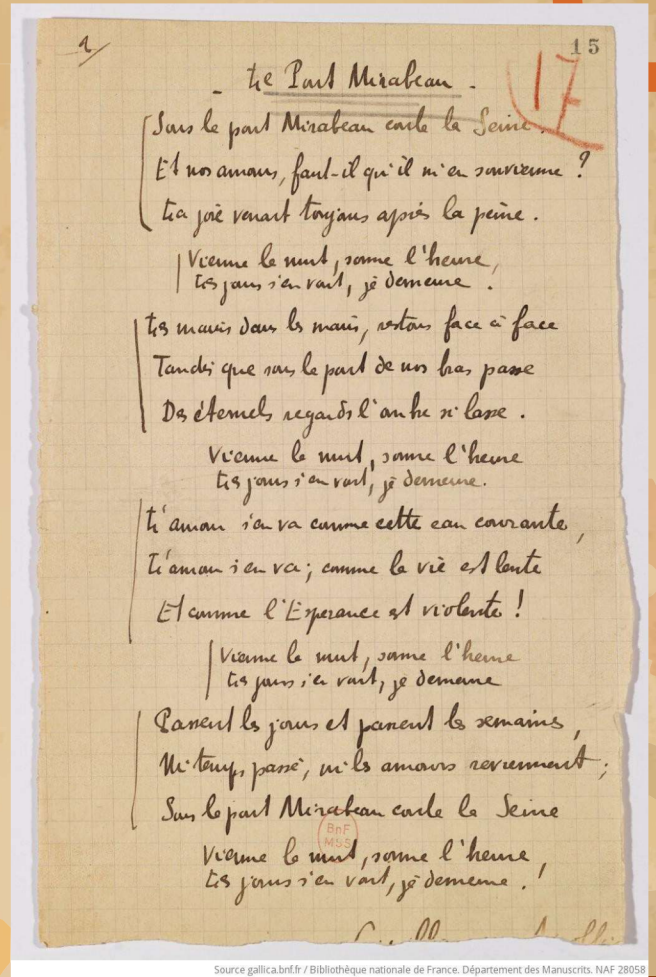 2/
15
17
- Le Pont Mirabeau -
Sous le pont Mirabeau coule la Seine.
Et nos amours, faut-il qu'il m'en souvienne ?
La joie venait toujours après la peine.
Vienne la nuit, sonne l'heure,
Les jours s'en vont, je demeure.
Les mains dans les mains, restons face à face
Tandis que sous le pont de nos bras passe
Des éternels regards l'onde si lasse.
Vienne la nuit, sonne l'heure
Les jours s'en vont, je demeure.
L'amour s'en va comme cette eau courante,
L'amour s'en va ; comme la vie est lente
Et comme l'Espérance est violente !
Vienne la nuit, sonne l'heure
Les jours s'en vont, je demeure
Passent les jours et passent les semaines,
Ni temps passé, ni les amours reviennent ;
Sous le pont Mirabeau coule la Seine
BnF
MSS
Vienne la nuit, sonne l'heure,
Les jours s'en vont, je demeure. !
Source gallica.bnf.fr / Bibliothèque nationale de France. Département des Manuscrits. NAF 28058